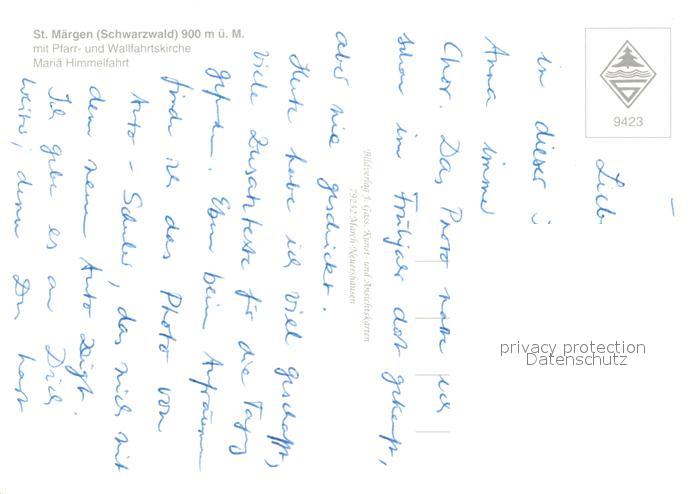 St. Märgen (Schwarzwald) 900 m ü. M.
mit Pfarr- und Wallfahrtskirche
Mariä Himmelfahrt
9423
Bildverlag J. Gass, Kunst- und Ansichtskarten
79232 March-Neuershausen
privacy protection
Datenschutz
Liebe
in dieser
Anna immer
Chor. Das Photo hatte ich
schon im Frühjahr dort gekauft,
aber nie geschickt.
Heute habe ich viel geschafft,
viele Zusatztexte für die Tagung
gefunden. Eben beim Aufräumen
finde ich das Photo von
Auto-Schuler, das mich mit
dem neuen Auto zeigt.
Ich gebe es an Dich
weiter, denn Du hast